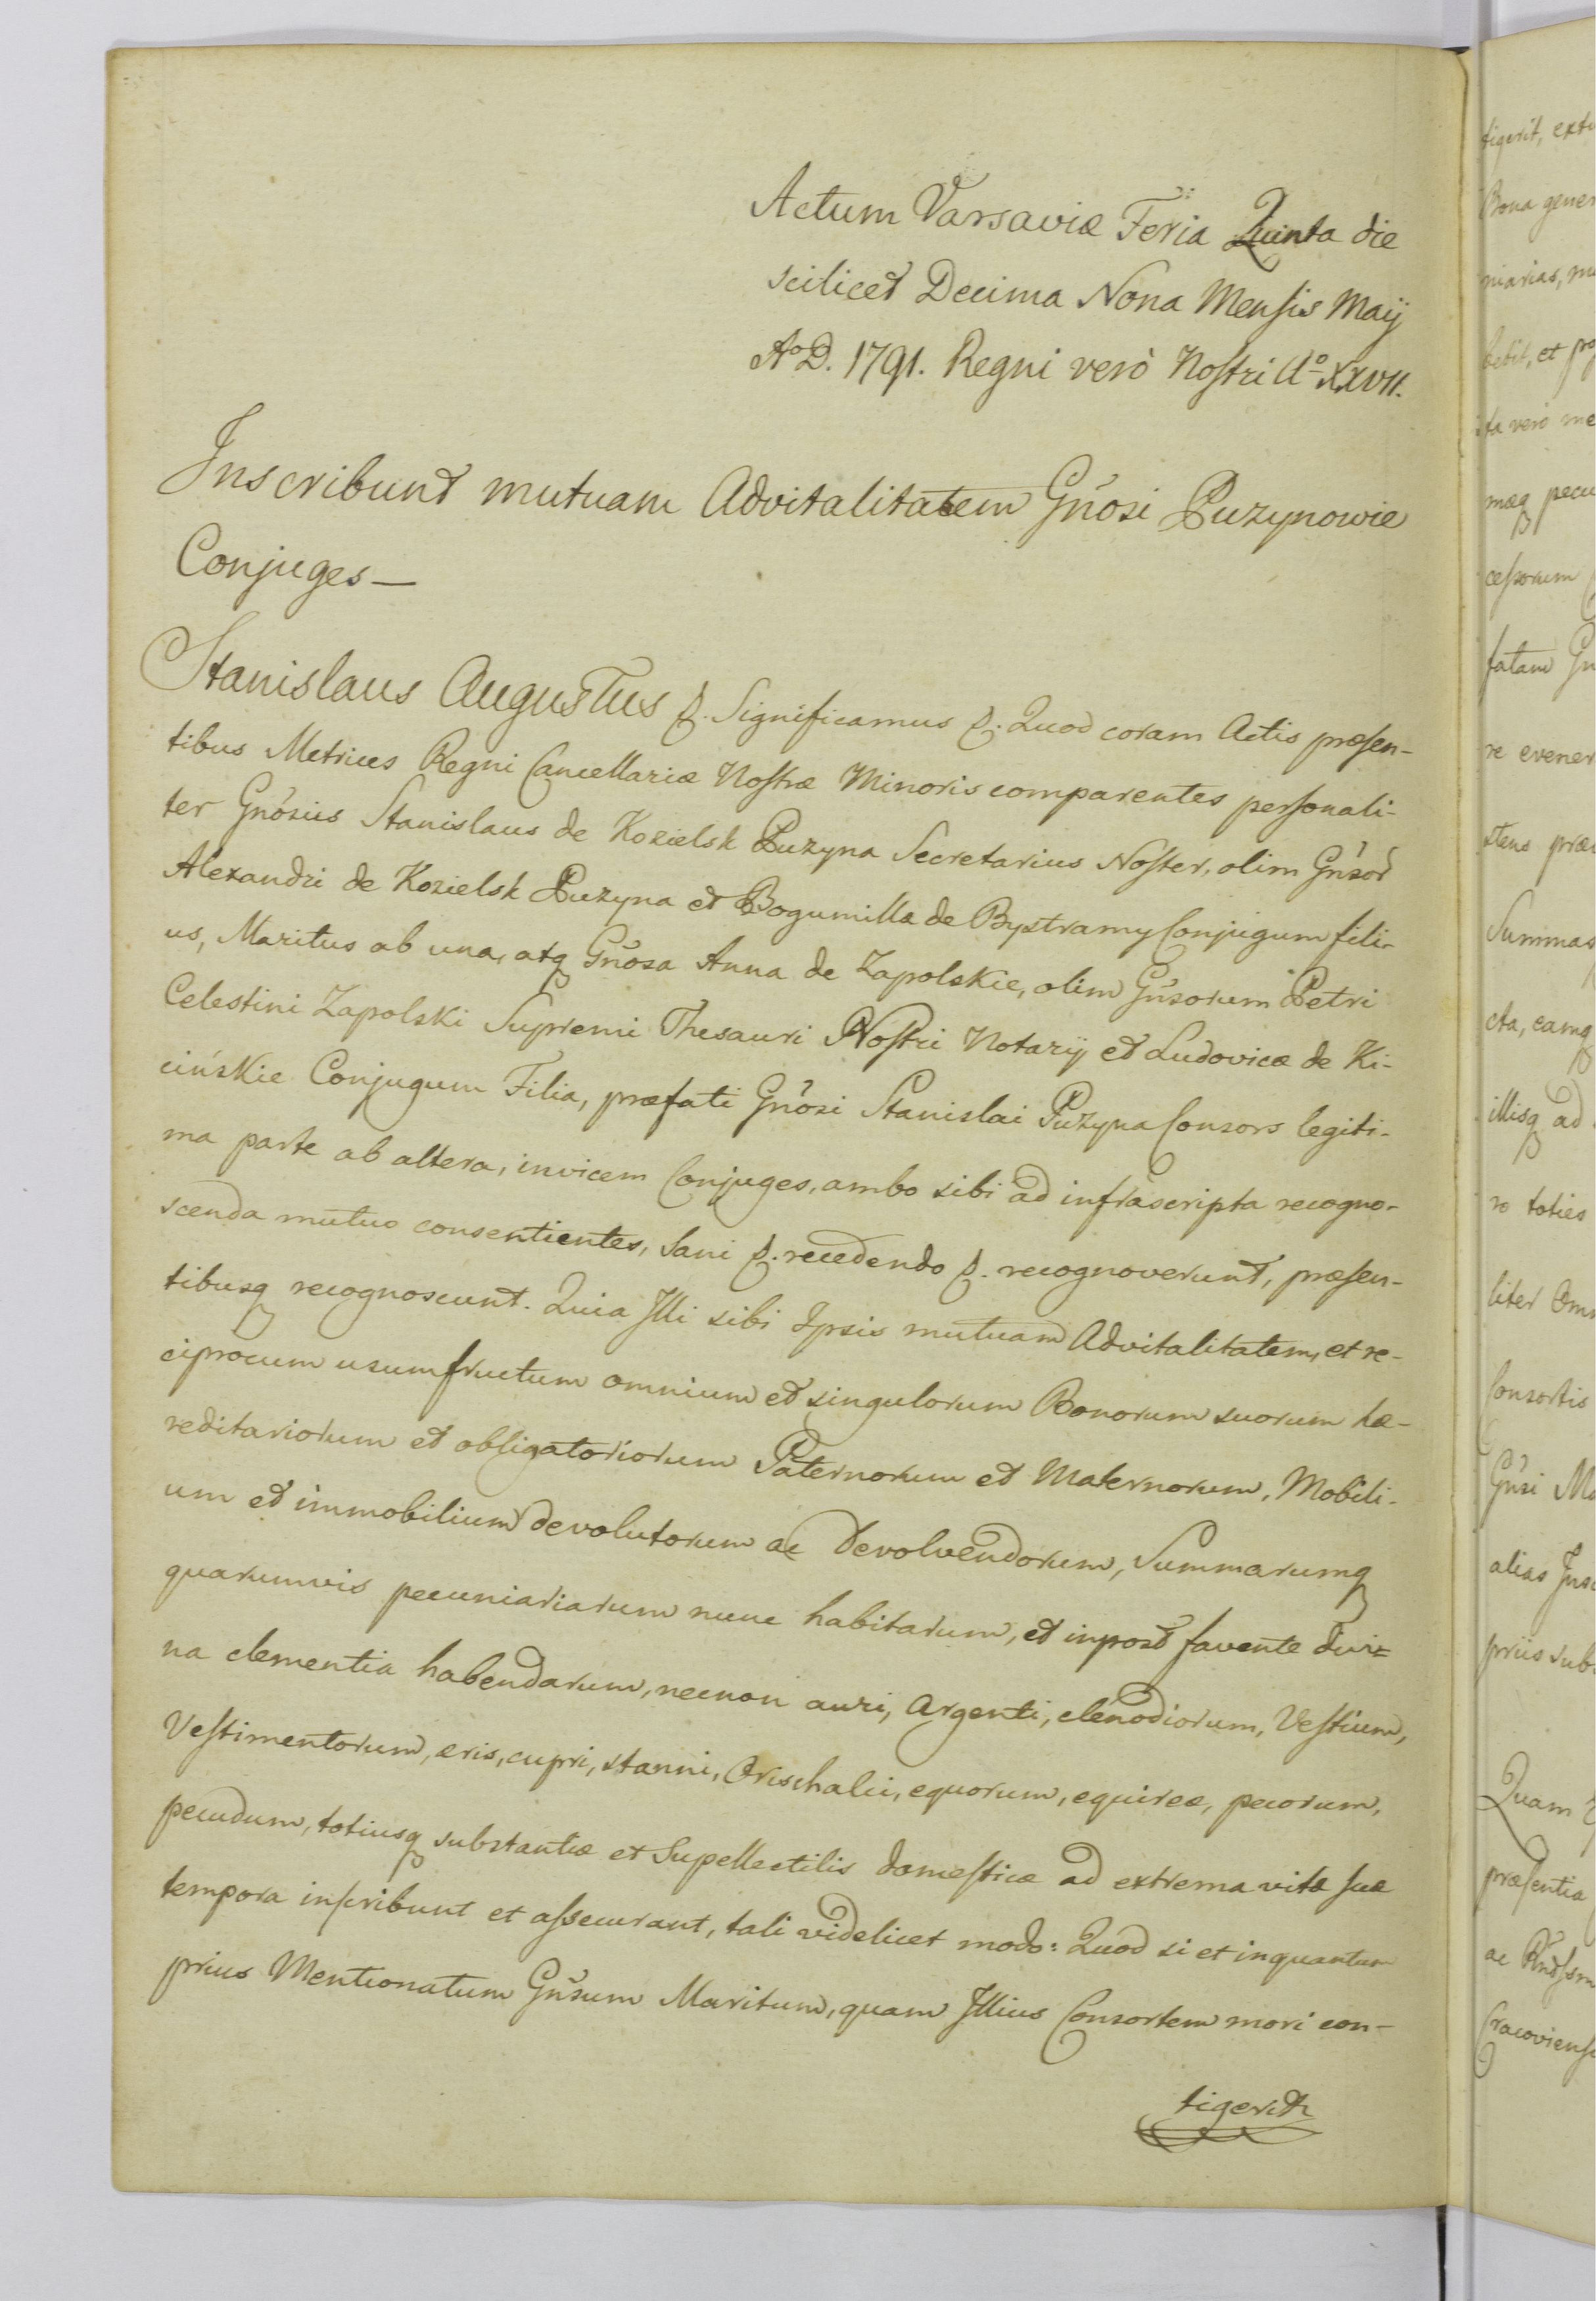 Actum Varsaviæ Feria Quinta die
scilicet Decima Nona Mensis Maij
Aº D. 1791. Regni verò Nostri Aº XXVII.
Inscribunt mutuam Advitalitatem Gn̄osi Puzynowie
Conjuges—
Stanislaus Augustus &. Significamus &. Quod coram Actis præsen-
tibus Metrices Regni Cancellariæ Nostræ Minoris comparentes personali-
ter Gn̄osus Stanislaus de Kozielsk Puzyna Secretarius Noster, olim Gn̄sor̄
Alexandri de Kozielsk Puzyna et Bogumilla de Bystramy Conjugum fili-
us, Maritus ab una, atq Gn̄osa Anna de Zapolskie, olim Gn̄sorum Petri
Celestini Zapolski Supremi Thesauri Nostri Notarij et Ludovicæ de Ki-
cińskie Conjugum Filia, præfati Gn̄osi Stanislai Puzyna Consors legiti-
ma parte ab altera, invicem Conjuges, ambo sibi ad infrascripta recogno-
scenda mutuo consentientes, Sani &. recedendo &. recognoverunt, præsen-
tibusq recognoscunt. Quia Illi sibi Ipsis mutuam Advitalitatem, et re-
ciprocum usumfructum omnium et singulorum Bonorum suorum hæ-
reditariorum et obligatoriorum Paternorum et Maternorum, Mobili-
um et immobilium devolutorum ac Devolvendorum, Summarumq
quarumvis pecuniariarum nunc habitarum, et inpost favente divi=
na clementia habendarum, necnon auri, Argenti, clenodiorum, Vestium,
Vestimentorum, æris, cupri, stanni, Orischalci, equorum, equireæ, pecorum,
pecudum, totiusq substantiæ et Supellectilis domesticæ ad extrema vitæ suæ
tempora inscribunt et assecurant, tali videlicet modo: Quod si et inquantum
prius Mentionatum Gn̄sum Maritum, quam Illius Consortem mori con-
tigerit
tigerit, ext
Bona gener
niarias, m
bebit, et pro
ta verò me
mæq pecu
cessorum
fatam Gn
re evener
stens præ
Summas
cta, eamq
illisq ad
ro toties
liter Om
Consortis
Gn̄si Ma
alias Insc
priis sub
Quam
præsentia
ac
Cracoviens